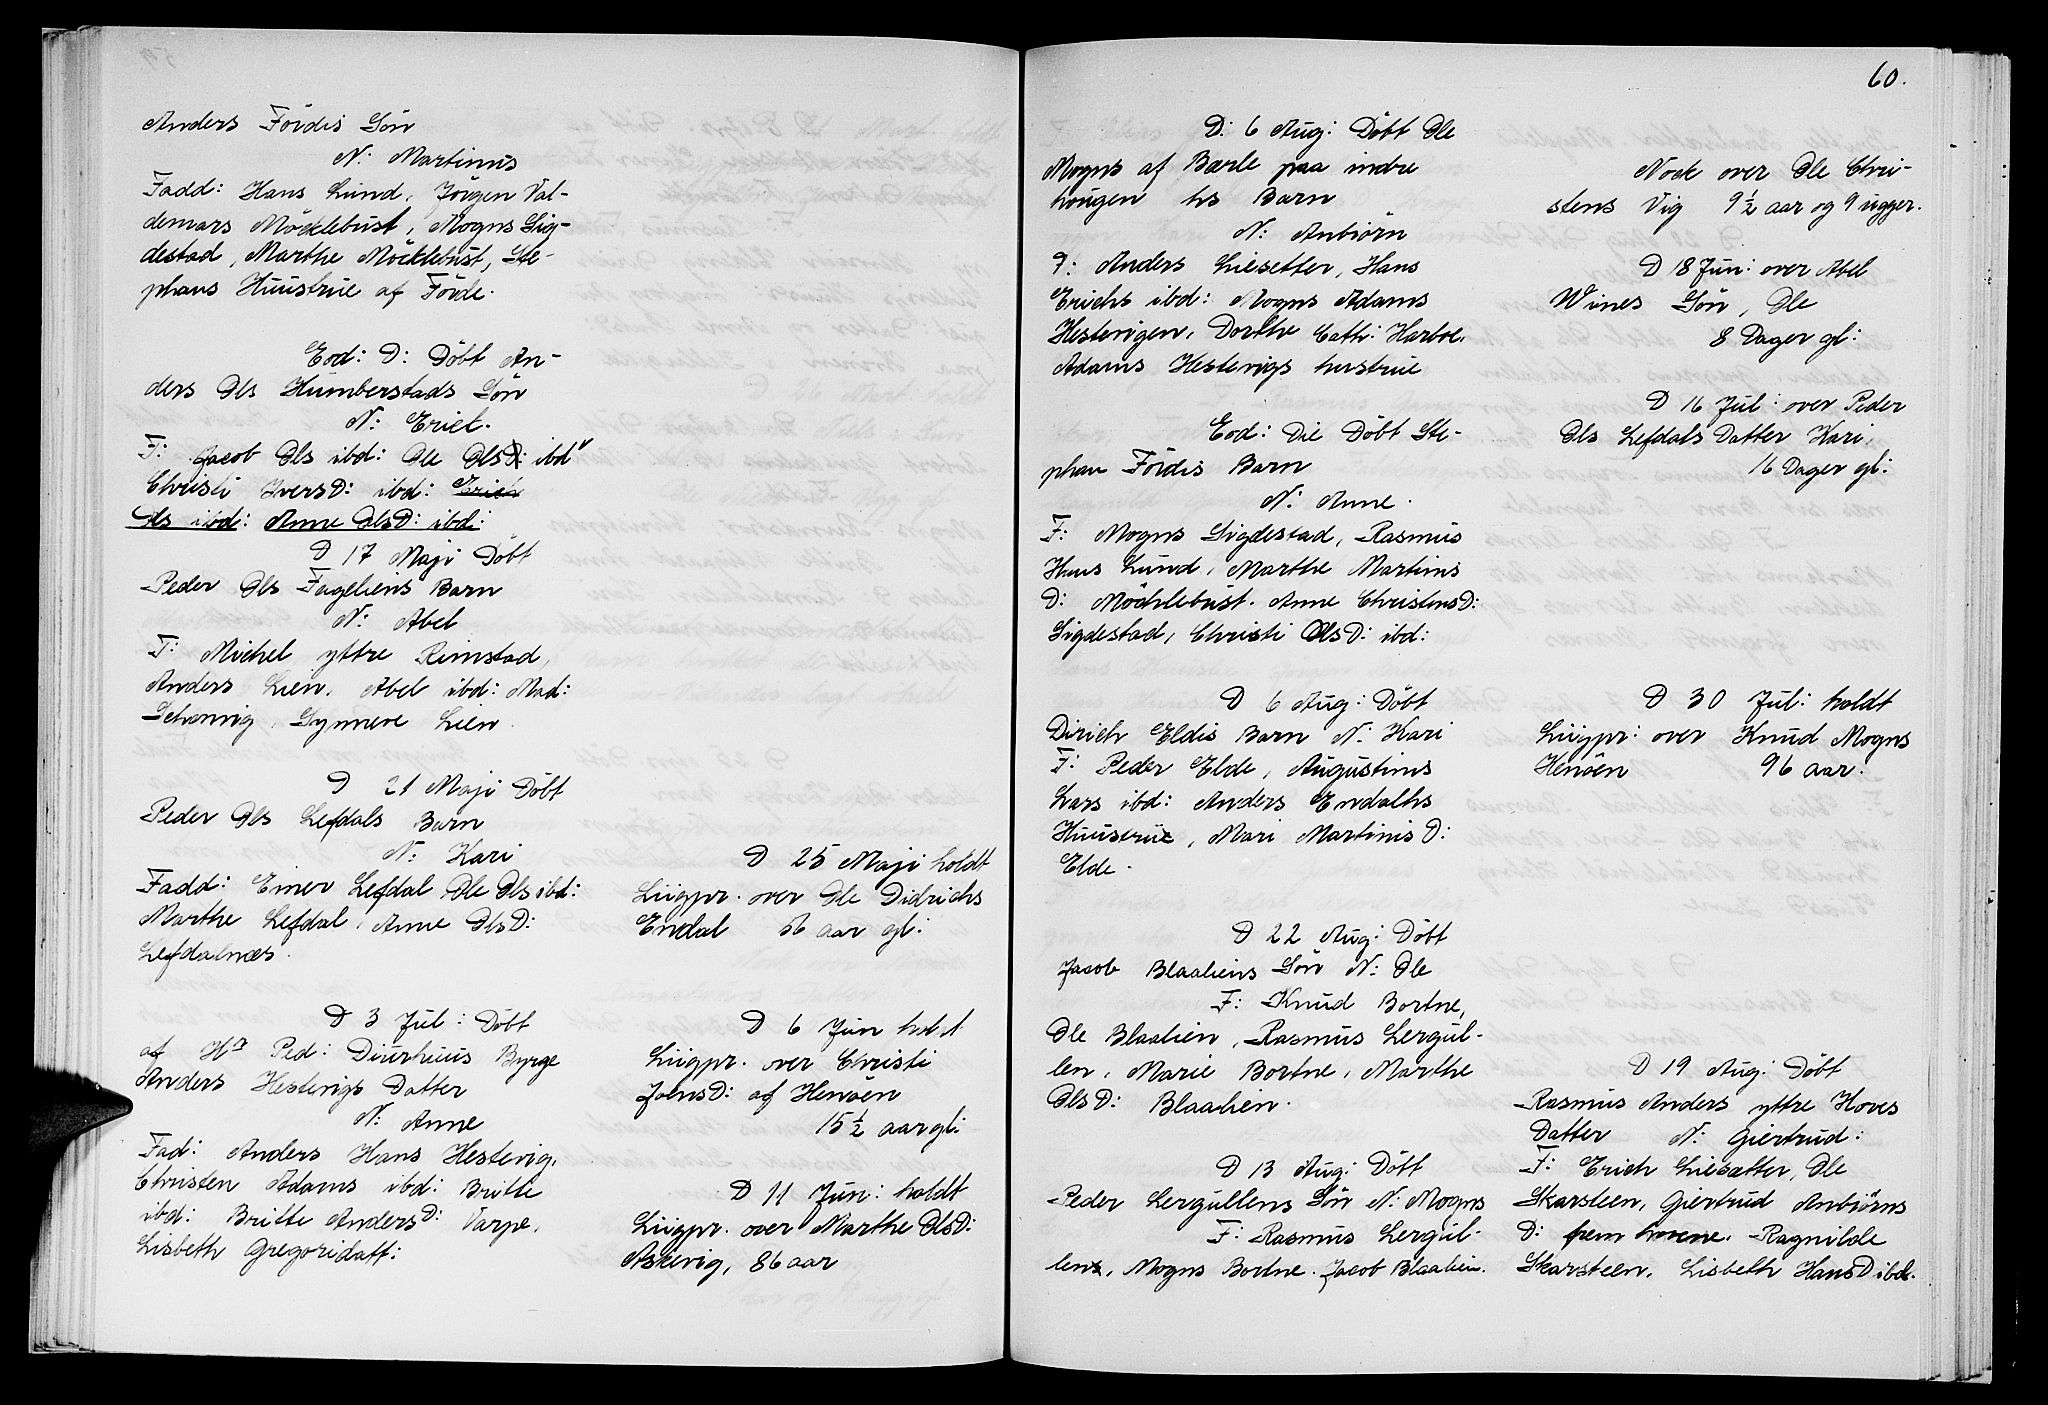 60.
Anders Fördis Sön
N: Martinus
Fadd: Hans Lund, Jörgen Val-
demars Möcklebust, Mogns Sig-
destad, Marthe Möcklebust, Ste-
phans Huustrue af Förde.
Eod: D: Döbt An-
ders Ols Humberstads Sön
N: Erick.
F: Jacob Ols ibd: Ole OlsD: ibd
Christi IversD: ibd: Erich
Ols ibd: Anne OlsD: ibd:
D 17 Maji Döbt
Peder Ols Fageliens Barn
N: Abel
F: Michel yttre Rimstad,
Anders Lien, Abel ibd: Mad:
Schonvig, Synneve Lien.
D 21 Maji Döbt
Peder Ols Lefdals Barn
N: Kari
Fadd: Einer Lefdal Ole Ols ibd:
Marthe Lefdal, Anne OlsD:
Lefdalnæs.
D 3 Jul: Döbt
af Hr Ped: Diurhuus Byrge
Anders Hestevigs Datter
N: Anne
Fad: Anders Hans Hestevig,
Christen Adams ibd: Britte
ibd: Britte AndersD: Varpe,
Lisbeth Gregoridatt:
D 25 Maji holdt
Liigpr. over Ole Didrichs
Endal 56 aar gl:
D 6 Jun holdt
Liigpr. over Christi
JoensD: af Henöen
15 1/2 aar gl:
D 11 Jun: holdt
Liigpr. over Marthe OlsD:
Askevig, 86 aar
D: 6 Aug: Döbt Ole
Mogns af Bærle paa indre
hougen hs Barn
N: Anbiörn
F: Anders Liesetter, Hans
Erichs ibd: Mogns Adams
Hestevigen, Dorthe Cath: Harboe,
Adams Hestevigs hustrue
Eod: Die Döbt Ste-
phan Fördis Barn
N: Anne.
F: Mogns Sigdestad, Rasmus
Hans Lund, Marthe Martinis
D: Möchlebust. Anne ChristensD:
Sigdestad, Christi OlsD: ibd:
D 6 Aug: Döbt
Dirich Eldis Barn N: Kari
F: Peder Elde, Augustinus
Lars ibd: Anders Endalhs
Huustrue, Mari Martinis D:
Elde.
D 22 Aug: Döbt
Jacob Blaaliens Sön N: Ole
F: Knud Bortne,
Ole Blaalien, Rasmus Lergul-
len, Marie Bortne, Marthe
OlsD: Blaalien.
D 13 Aug: Döbt
Peder Lergullens Sön N: Mogns
F: Rasmus Lergul-
lens, Mogns Bortne. Jacob Blaalien.
Nock over Ole Chri-
stens Vig 9 1/2 aar og 9 ugger.
D 18 Jun: over Abel
Wines Sön, Ole
8 Dager gl:
D 16 Jul: over Peder
Ols Lefdals Datter Kari,
16 Dager gl:
D 30 Jul: holdt
Liigpr: over Knud Mogns
Henöen 96 aar.
D 19 Aug: Döbt
Rasmus Anders yttre Hoves
Datter N: Giertrud:
F: Erich Liesætter, Ole
Skarsteen, Giertrud Anbiörns
D: frem hovene. Ragnilde
Skarsteen, Lisbeth HansD ibd.